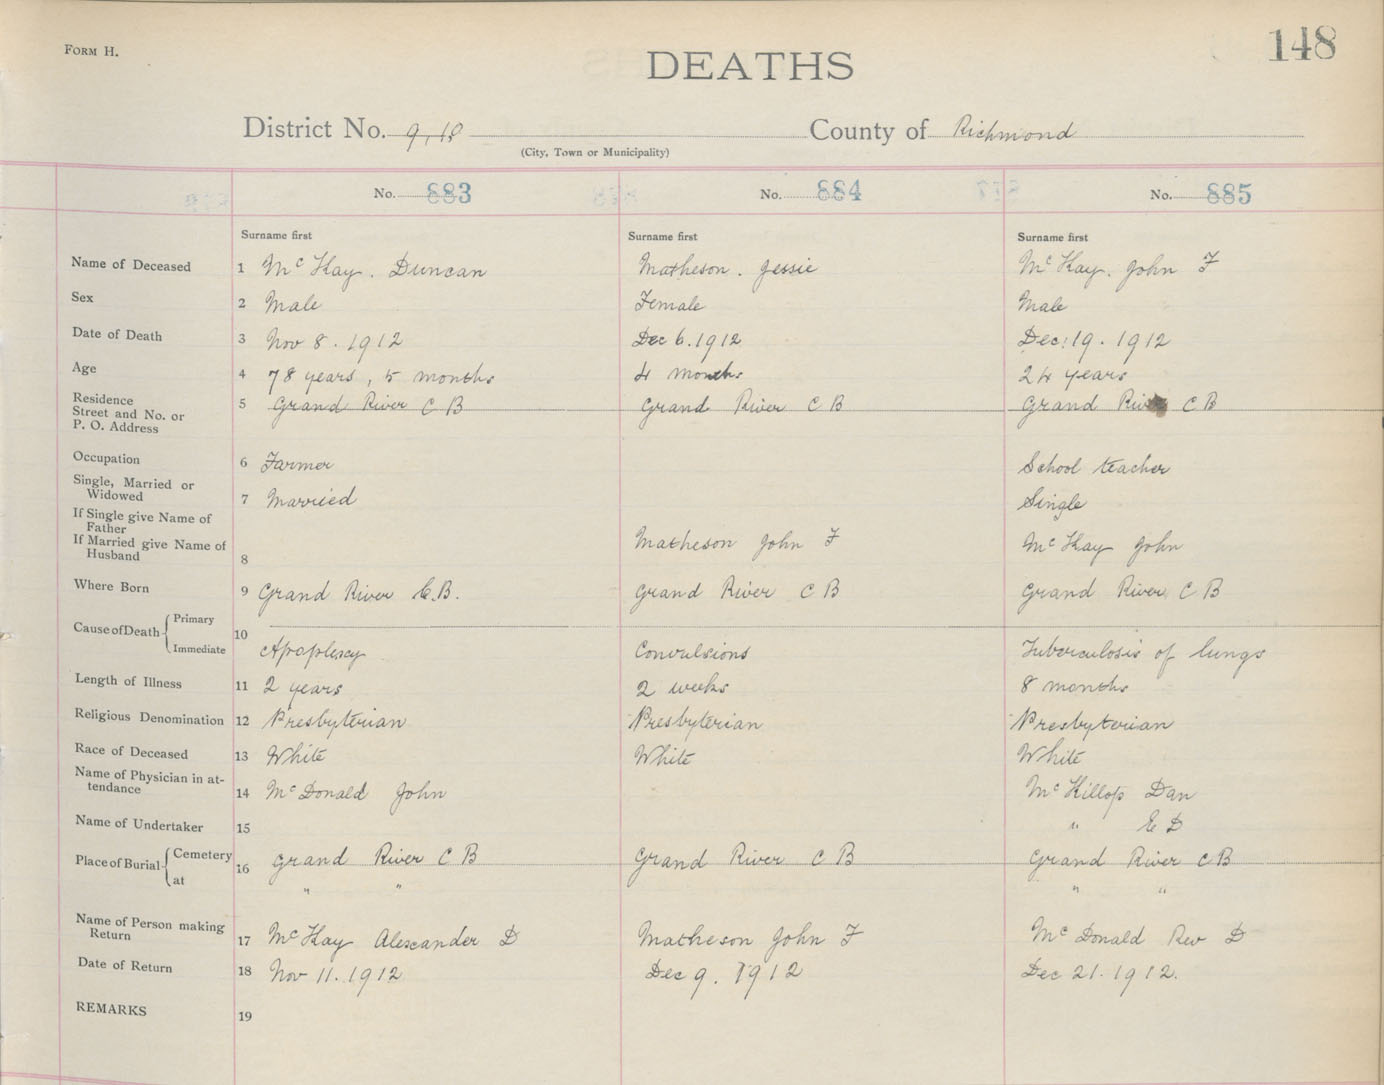 Form H.
148
DEATHS
District No. 9, 10 County of Richmond
(City, Town or Municipality)
No. 883 No. 884 No. 885
Surname first Surname first Surname first
Name of Deceased 1 McKay. Duncan Matheson. Jessie McKay. John F
Sex 2 Male Female Male
Date of Death 3 Nov 8. 1912 Dec 6. 1912 Dec. 19. 1912
Age 4 78 years, 5 months 4 months 24 years
Residence
Street and No. or
P. O. Address 5 Grand River C B Grand River C B Grand River C B
Occupation 6 Farmer School teacher
Single, Married or
Widowed 7 Married Single
If Single give Name of
Father
If Married give Name of
Husband 8 Matheson John F McKay John
Where Born 9 Grand River C.B. Grand River C B Grand River C B
Cause of Death Primary
Immediate 10 Apoplexy Convulsions Tuberculosis of lungs
Length of Illness 11 2 years 2 weeks 8 months
Religious Denomination 12 Presbyterian Presbyterian Presbyterian
Race of Deceased 13 White White White
Name of Physician in at-
tendance 14 McDonald John McKillop Dan
Name of Undertaker 15 " E D
Place of Burial Cemetery 16 Grand River C B Grand River C B Grand River C B
at " " " "
Name of Person making
Return 17 McKay Alexander D Matheson John F McDonald Rev D
Date of Return 18 Nov 11. 1912 Dec 9. 1912 Dec 21. 1912.
REMARKS 19